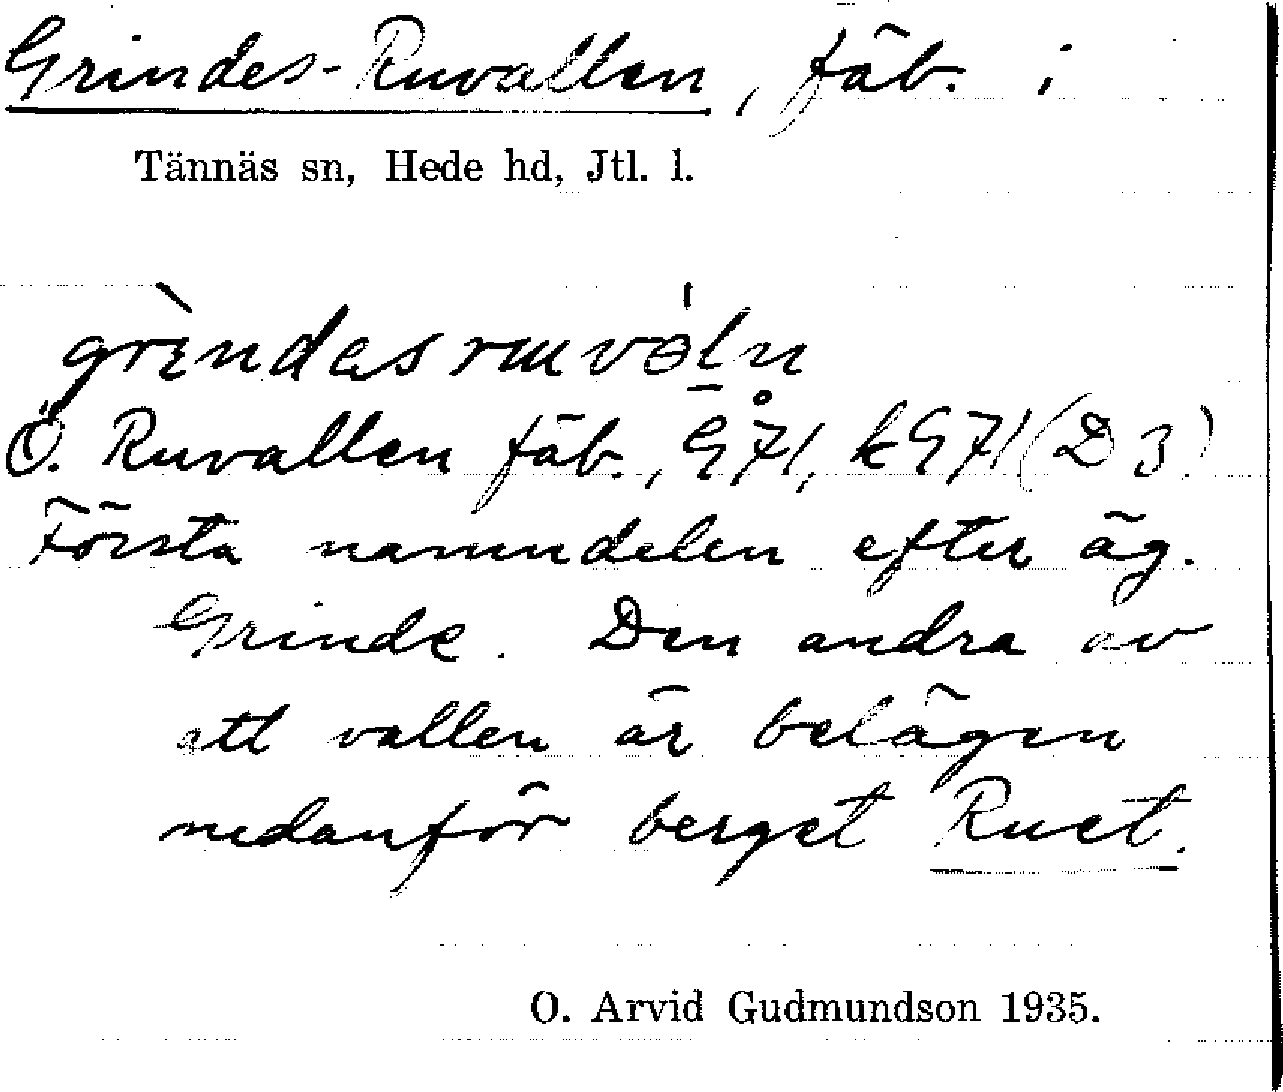 Grindes-Ruvallen, fäb. i
Tännäs sn, Hede hd, Jtl. l.
grìndas ruuvəḷn
Ö. Ruvallen fäb., G 71, kG71 (D 3)
Första namndelen efter äg.
Grinde. Den andra av
att vallen är belägen
nedanför berget Ruet.
O. Arvid Gudmundson 1935.